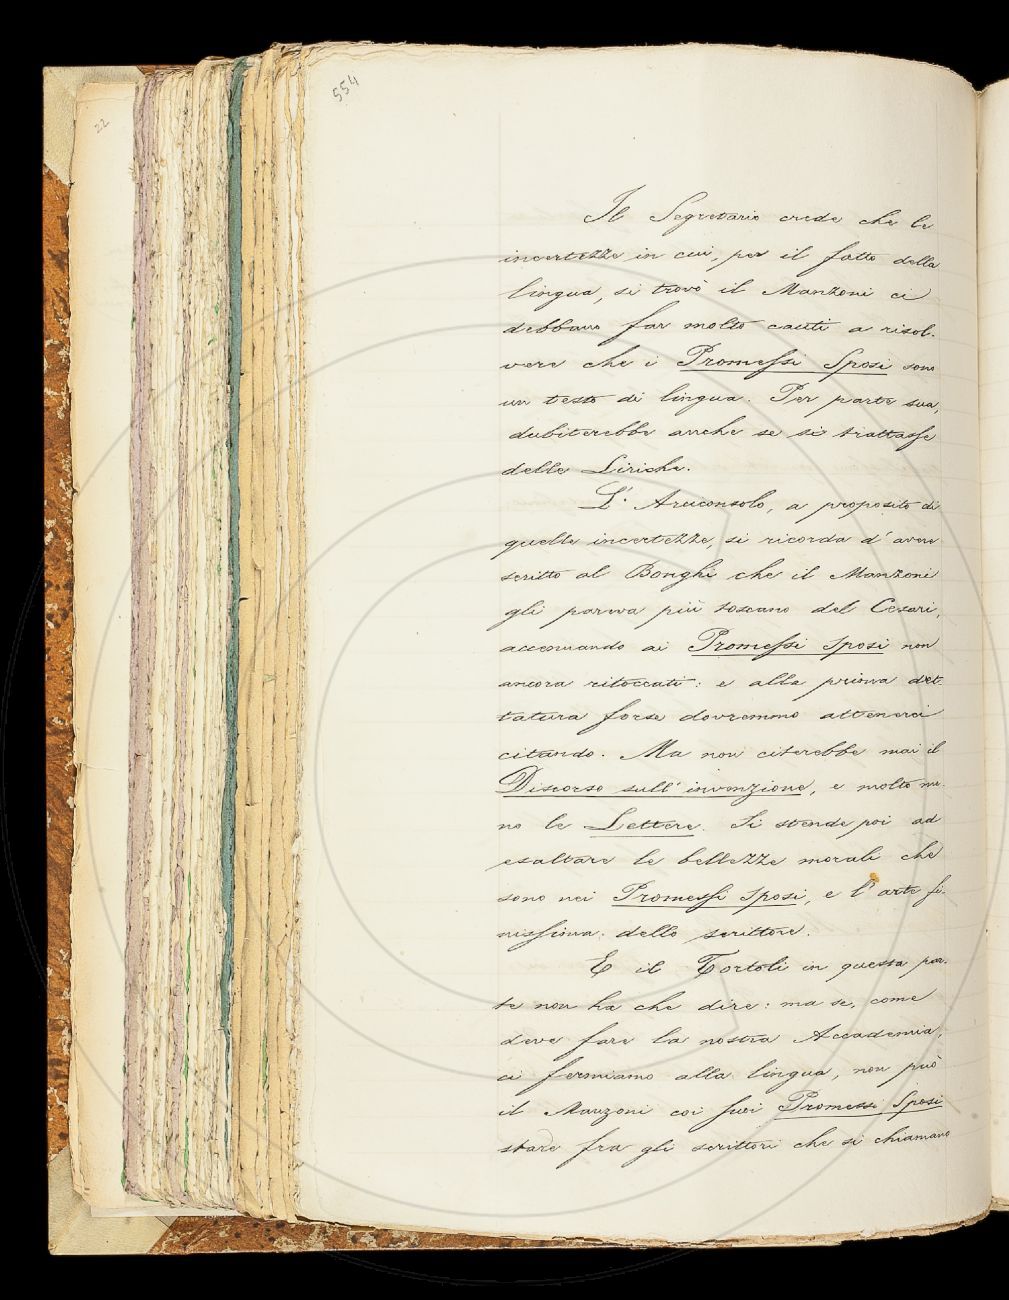 22
554
Il Segretario crede che le
incertezze in cui, per il fatto della
lingua, si trovò il Manzoni ci
debbano far molto cauti a risol-
vere che i Promessi Sposi sono
un testo di lingua. Per parte sua,
dubiterebbe anche se si trattasse
delle Liriche.
L'Arciconsolo, a proposito di
quelle incertezze, si ricorda d'avere
scritto al Bonghi che il Manzoni
gli pareva più toscano del Cesari,
accennando ai Promessi Sposi non
ancora ritoccati: e alla prima det-
tatura forse dovremmo attenerci
citando. Ma non citerebbe mai il
Discorso sull'invenzione, e molto me-
no le Lettere. Si stende poi ad
esaltare le bellezze morali che
sono nei Promessi Sposi, e l'arte fi-
nissima dello scrittore.
E il Tortoli in questa par-
te non ha che dire: ma se, come
deve fare la nostra Accademia,
ci fermiamo alla lingua, non può
il Manzoni coi suoi Promessi Sposi
stare fra gli scrittori che si chiamano